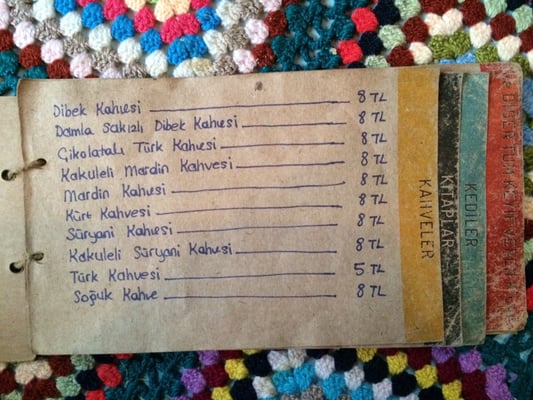 Dibek Kahvesi 8 TL
Damla Sakızlı Dibek Kahvesi 8 TL
Çikolatalı Türk Kahvesi 8 TL
Kakuleli Mardin Kahvesi 8 TL
Mardin Kahvesi 8 TL
Kürt Kahvesi 8 TL
Süryani Kahvesi 8 TL
Kakuleli Süryani Kahvesi 8 TL
Türk Kahvesi 5 TL
Soğuk Kahve 8 TL
KAHVELER
KİTAPLAR
KEDİLER